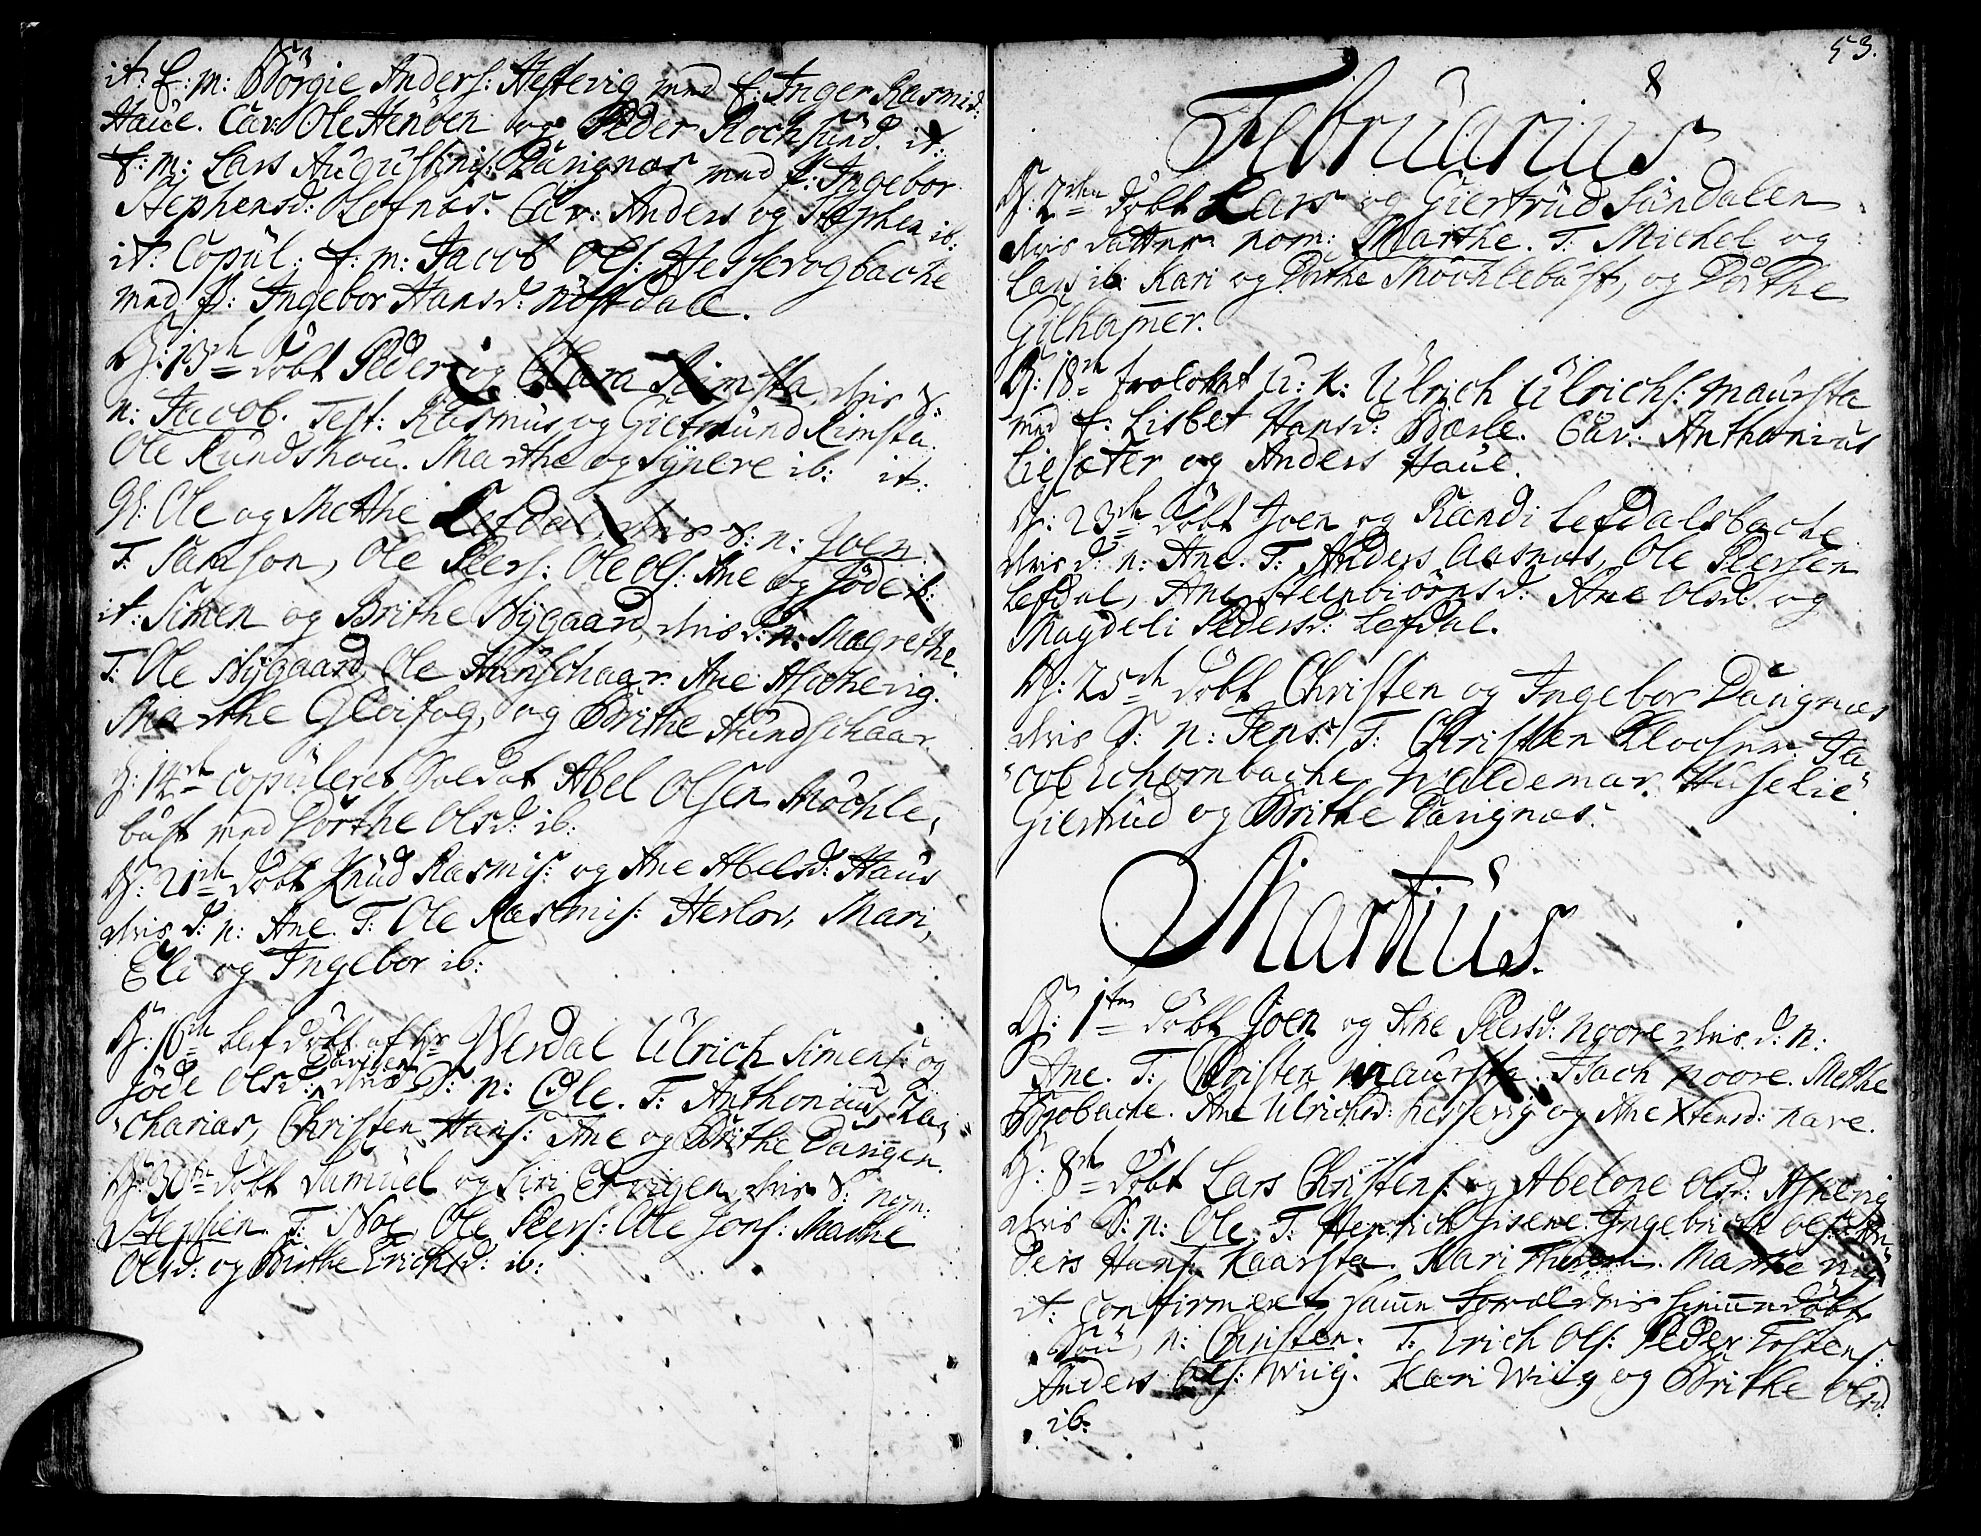 it: f: m: Børgie Anders: Hestevig med f: Inger Rasmisd:
Haüe. Cav: Ole Henöen og Peder Rochsund. it:
f: m: Lars Augustinis: Davignæs med f: Ingebor
Stephensd: Olsnæs. Cav: Anders og Stephen ib:
it: Copul: f: m: Jacob Ols: Hessevogbache
med f: Ingebor Hansd: Nöstdale.
D: 13de döbt Peder og Clara Rimsta, dvis s:
n: Jacob. Test: Rasmus og Giertrund Rimsta.
Ole Rundshou. Marthe og Synere ib: it:
Ole og Methe Lefdal, dvis s: n: Joen.
T: Samson, Ole Peers: Ole Ols: Ane og Jöde ib:
it: Simen og Brithe Nygaard, dvis d: n: Magrethe.
T: Ole Nygaard, Ole Hunschaar. Ane Aschevig.
Marthe Gloifog, og Brithe Hundschaar.
D: 14de copuleret Soldat Abel Olsen Möchle,
bust med Dorthe Olsd: ib:
D: 21de döbt Knud Rasmis: og Ane Abelsd: Haus
dvis d: n: Ane. T: Ole Rasmis: Herlov, Mari,
Eli og Ingebor ib:
D: 16de blef döbt af hr Werdal Ulrich Simens: og
Jöde Olsd: Davigen dvis S: n: Ole. T: Anthonius Za,
charias, Christen Hans: Ane og Brithe Davigen.
D: 30te döbt Samuel og Siri Ervigen, dvis s: nom:
Stephen. T: Noe, Ole Peers: Ole Jons: Marthe
Olsd: og Brithe Erichsd: ib:
53.
Februarius
D: 2den döbt Lars og Giertrud Sundalen
dvis datter nom: Marthe. T: Michel og
Lars ib: Kari og Dorthe Möchlebust, og Dorthe
Gilhamer.
D: 18de trolovet u: k: Ulrich Ulrichs: Maursta
med f: Lisbet Hansd: Bærle. Cav: Anthonius
Liesæter og Anders Haue.
D: 23de döbt Joen og Randi Lefdalsbache
dvis d: n: Ane. T: Anders Aasnæs, Ole Peersen
Lefdal, Ane Steenbiörnsd: Ane Olsd: og
Magdeli Pedersd: Lefdal.
D: 25de döbt Christen og Ingebor Davignæs
dvis S: n: Jens. T: Christen Ja
cob Echornbache, Waldemar Huselie,
Giertrud og Brithe Davignæs.
Martius.
D: 1te döbt Joen og Ane Peersd: Noore dvis d: n:
Ane. T: Christen Maursta. Isach Noore. Methe
Ane Ulrichsd: Hessevig og Ane Xtensd: Nave.
D: 8de döbt Lars Christens: og Abelone Olsd: Aschevig
dvis S: n: Ole. T: Henrich Gisene. Ingebricht Ols: An
ders Hans: Kaarsta. Kari Marthe
it: confirmeret samme Forældris hiemmedöbte
Sön, n: Christen. T: Erich Ols: Peder Tostens:
Anders Ols: Wiig. Kari Wiig og Brithe Olsd:
ib: